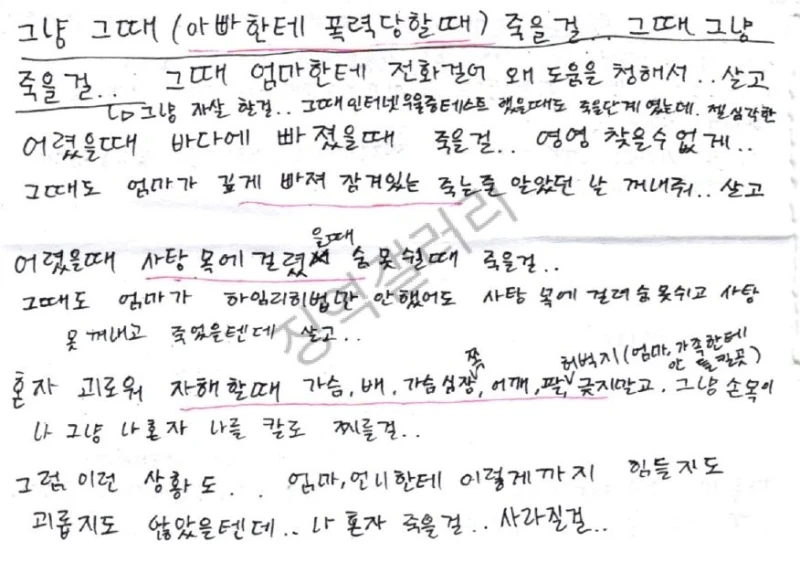 그냥 그때 (아빠한테 폭력당할때) 죽을걸.. 그때 그냥
죽을걸.. 그때 엄마한테 전화걸어 왜 도움을 청해서.. 살고
↳ 그냥 자살 할걸.. 그때 인터넷 우울증테스트 했을때도 죽을단계 였는데. 젤 심각한
어렸을때 바다에 빠졌을때 죽을걸.. 영영 찾을수 없게..
그때도 엄마가 깊게 빠져 잠겨있는 죽는줄 알았던 날 꺼내줘.. 살고
어렸을때 사탕 목에 걸렸을때 숨 못쉴때 죽을걸..
그때도 엄마가 하임리히법만 안했어도 사탕 목에 걸려 숨 못쉬고 사탕
못 꺼내고 죽었을텐데 살고..
혼자 괴로워 자해할때 가슴, 배, 가슴심장쪽, 어깨, 팔, 허벅지(엄마, 가족한테 안 들킬곳) 긋지말고. 그냥 손목이
나 그냥 나혼자 나를 칼로 찌를걸..
그럼 이런 상황도.. 엄마, 언니한테 이렇게까지 힘들지도
괴롭지도 않았을텐데.. 나 혼자 죽을걸.. 사라질걸..
징역갤러리